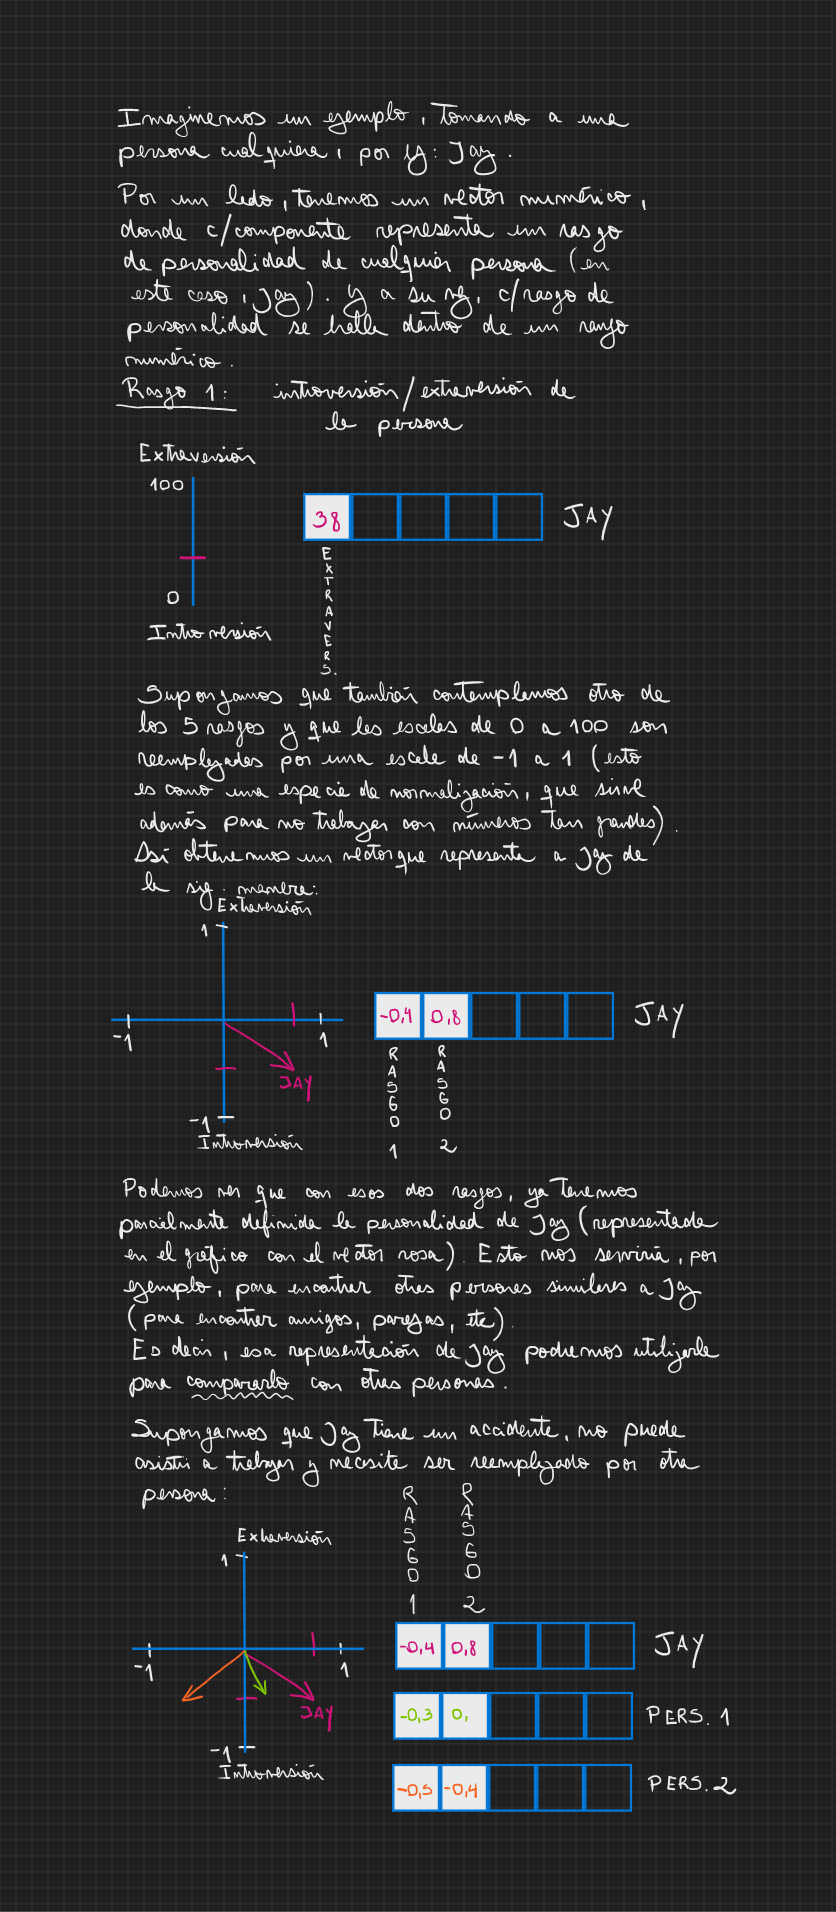 Imaginemos un ejemplo, Tomando a una
persona cualquiera, por ej: Jay.
Por un lado, tenemos un vector numérico,
donde c/componente representa un rasgo
de personalidad de cualquier persona (en
este caso, Jay). Y a su vez, c/rasgo de
personalidad se halla dentro de un rango
numérico.
Rasgo 1: introversión/extraversión de
la persona
Extraversión
100
0
Introversión
38
JAY
EXTRAVERS.
Supongamos que también contemplamos otro de
los 5 rasgos y que las escalas de 0 a 100 son
reemplazadas por una escala de -1 a 1 (esto
es como una especie de normalización, que sirve
además para no trabajar con números tan grandes).
Así obtenemos un vector que representa a Jay de
la sig. manera:
Extraversión
1
-1
1
JAY
-1
Introversión
-0,4 0,8
JAY
RASGO 1
RASGO 2
Podemos ver que con esos dos rasgos, ya Tenemos
parcialmente definida la personalidad de Jay (representada
en el gráfico con el vector rosa). Esto nos serviría, por
ejemplo, para encontrar otras personas similares a Jay
(para encontrar amigos, parejas, etc).
Es decir, esa representación de Jay podremos utilizarla
para compararlo con otras personas.
Supongamos que Jay Tiene un accidente, no puede
asistir a trabajar y necesita ser reemplazado por otra
persona:
RASGO 1
RASGO 2
Extraversión
1
-1
1
JAY
-1
Introversión
-0,4 0,8 JAY
-0,3 0, PERS. 1
-0,5 -0,4 PERS. 2